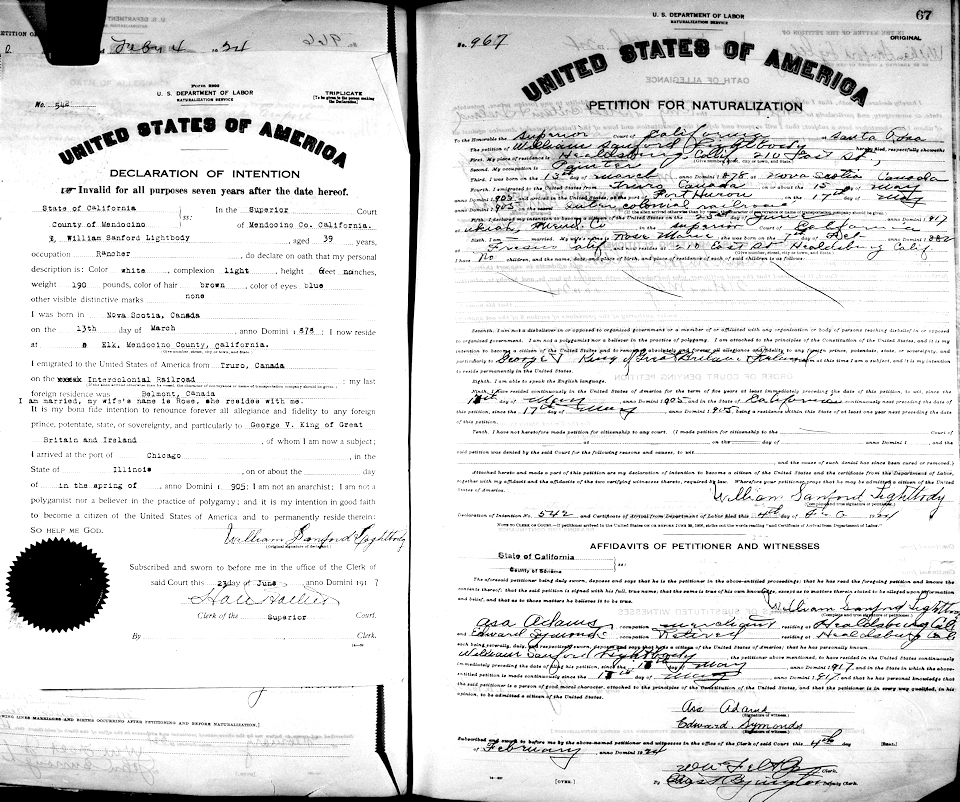 Feby 4 1924
Form 2202
U. S. DEPARTMENT OF LABOR
NATURALIZATION SERVICE
TRIPLICATE
(To be given to the person making the Declaration)
No. 542
UNITED STATES OF AMERICA
DECLARATION OF INTENTION
Invalid for all purposes seven years after the date hereof.
State of California
County of Mendocino
ss:
In the Superior Court
of Mendocino Co. California.
I, William Sanford Lightbody, aged 39 years,
occupation Rancher, do declare on oath that my personal
description is: Color white, complexion light, height 6 feet no inches,
weight 190 pounds, color of hair brown, color of eyes blue
other visible distinctive marks none
I was born in Nova Scotia, Canada
on the 13th day of March, anno Domini 1878; I now reside
at Elk, Mendocino County, California.
(Give number, street, city or town, and State.)
I emigrated to the United States of America from Truro, Canada
on the Intercolonial Railroad; my last
(If the alien arrived otherwise than by vessel, the character of conveyance or name of transportation company should be given.)
foreign residence was Belmont, Canada
I am married, my wife's name is Rose, she resides with me.
It is my bona fide intention to renounce forever all allegiance and fidelity to any foreign
prince, potentate, state, or sovereignty, and particularly to George V. King of Great
Britain and Ireland, of whom I am now a subject;
I arrived at the port of Chicago, in the
State of Illinois, on or about the day
of in the spring of, anno Domini 1905; I am not an anarchist; I am not a
polygamist nor a believer in the practice of polygamy; and it is my intention in good faith
to become a citizen of the United States of America and to permanently reside therein:
SO HELP ME GOD.
William Sanford Lightbody
(Original signature of declarant.)
Subscribed and sworn to before me in the office of the Clerk of
said Court this 23 day of June, anno Domini 1917
Hale
Clerk of the Superior Court.
By Clerk.
67
U. S. DEPARTMENT OF LABOR
NATURALIZATION SERVICE
ORIGINAL
No. 967
UNITED STATES OF AMERICA
PETITION FOR NATURALIZATION
To the Honorable the Superior Court of California at Santa Rosa
The petition of William Sanford Lightbody hereby filed, respectfully showeth:
First. My place of residence is Healdsburg, Calif 210 East St,
(Give number, street, city or town, and State.)
Second. My occupation is
Third. I was born on the 13 day of March 1878 at Nova Scotia Canada
Fourth. I emigrated to the United States from Truro Canada on or about the 15 day of May
anno Domini 1905 and arrived in the United States, at the port of Port Huron on the 17th day of May
anno Domini 1905 on the Inter colonial railroad
Fifth. I declared my intention to become a citizen of the United States on the 23d day of June anno Domini 1917
at Ukiah, Mend. Co in the Superior Court of California
Sixth. I am married. My wife's name is Rose Marie; she was born on the 7th day of Oct anno Domini 1882
and now resides at 210 East St Healdsburg Calif
(Give number, street, city or town, and State.)
I have no children, and the name, date, and place of birth, and place of residence of each of said children is as follows:
Seventh. I am not a disbeliever in or opposed to organized government or a member of or affiliated with any organization or body of persons teaching disbelief in or opposed
to organized government. I am not a polygamist nor a believer in the practice of polygamy. I am attached to the principles of the Constitution of the United States, and it is my
intention to become a citizen of the United States and to renounce absolutely and forever all allegiance and fidelity to any foreign prince, potentate, state, or sovereignty, and
particularly to George V King of Great Britain & Ireland of whom at this time I am a subject, and it is my intention
to reside permanently in the United States.
Eighth. I am able to speak the English language.
Ninth. I have resided continuously in the United States of America for the term of five years at least immediately preceding the date of this petition, to wit, since the
day of May, anno Domini 1905 and in the State of California continuously next preceding the date of this
petition, since the 17th day of May, anno Domini 1905, being a residence within this State of at least one year next preceding the date
of this petition.
Tenth. I have not heretofore made petition for citizenship to any court. (I made petition for citizenship to the Court of
at on the day of anno Domini 1 , and the
said petition was denied by the said Court for the following reasons and causes, to wit,
, and the cause of such denial has since been cured or removed.)
Attached hereto and made a part of this petition are my declaration of intention to become a citizen of the United States and the certificate from the Department of Labor,
together with my affidavit and the affidavits of the two verifying witnesses thereto, required by law. Wherefore your petitioner prays that he may be admitted a citizen of the United
States of America.
William Sanford Lightbody
(Complete and true signature of petitioner.)
Declaration of Intention No. 542 and Certificate of Arrival from Department of Labor filed this 4th day of 1924
AFFIDAVITS OF PETITIONER AND WITNESSES
State of California
County of Sonoma
ss:
The aforesaid petitioner being duly sworn, deposes and says that he is the petitioner in the above-entitled proceedings; that he has read the foregoing petition and knows the
contents thereof; that the said petition is signed with his full, true name; that the same is true of his own knowledge, except as to matters therein stated to be alleged upon information
and belief, and that as to those matters he believes it to be true.
William Sanford Lightbody
(Complete and true signature of petitioner.)
Asa Adams, occupation merchant, residing at Healdsburg Cal
and Edward Symonds, occupation Retired, residing at Healdsburg Cal
each being severally, duly, and respectively sworn, deposes and says that he is a citizen of the United States of America; that he has personally known
William Sanford Lightbody, the petitioner above mentioned, to have resided in the United States continuously
immediately preceding the date of filing his petition, since the day of May, anno Domini 1917, and in the State in which the above-
entitled petition is made continuously since the day of May, anno Domini 1917 and that he has personal knowledge that
the said petitioner is a person of good moral character, attached to the principles of the Constitution of the United States, and that the petitioner is in every way qualified, in his
opinion, to be admitted a citizen of the United States.
Asa Adams
(Signature of witness.)
Edward Symonds
(Signature of witness.)
Subscribed and sworn to before me by the above-named petitioner and witnesses in the office of the Clerk of said Court this 4th day [Seal.]
of February, anno Domini 1924
Clerk.
By Deputy Clerk.
[OVER.]